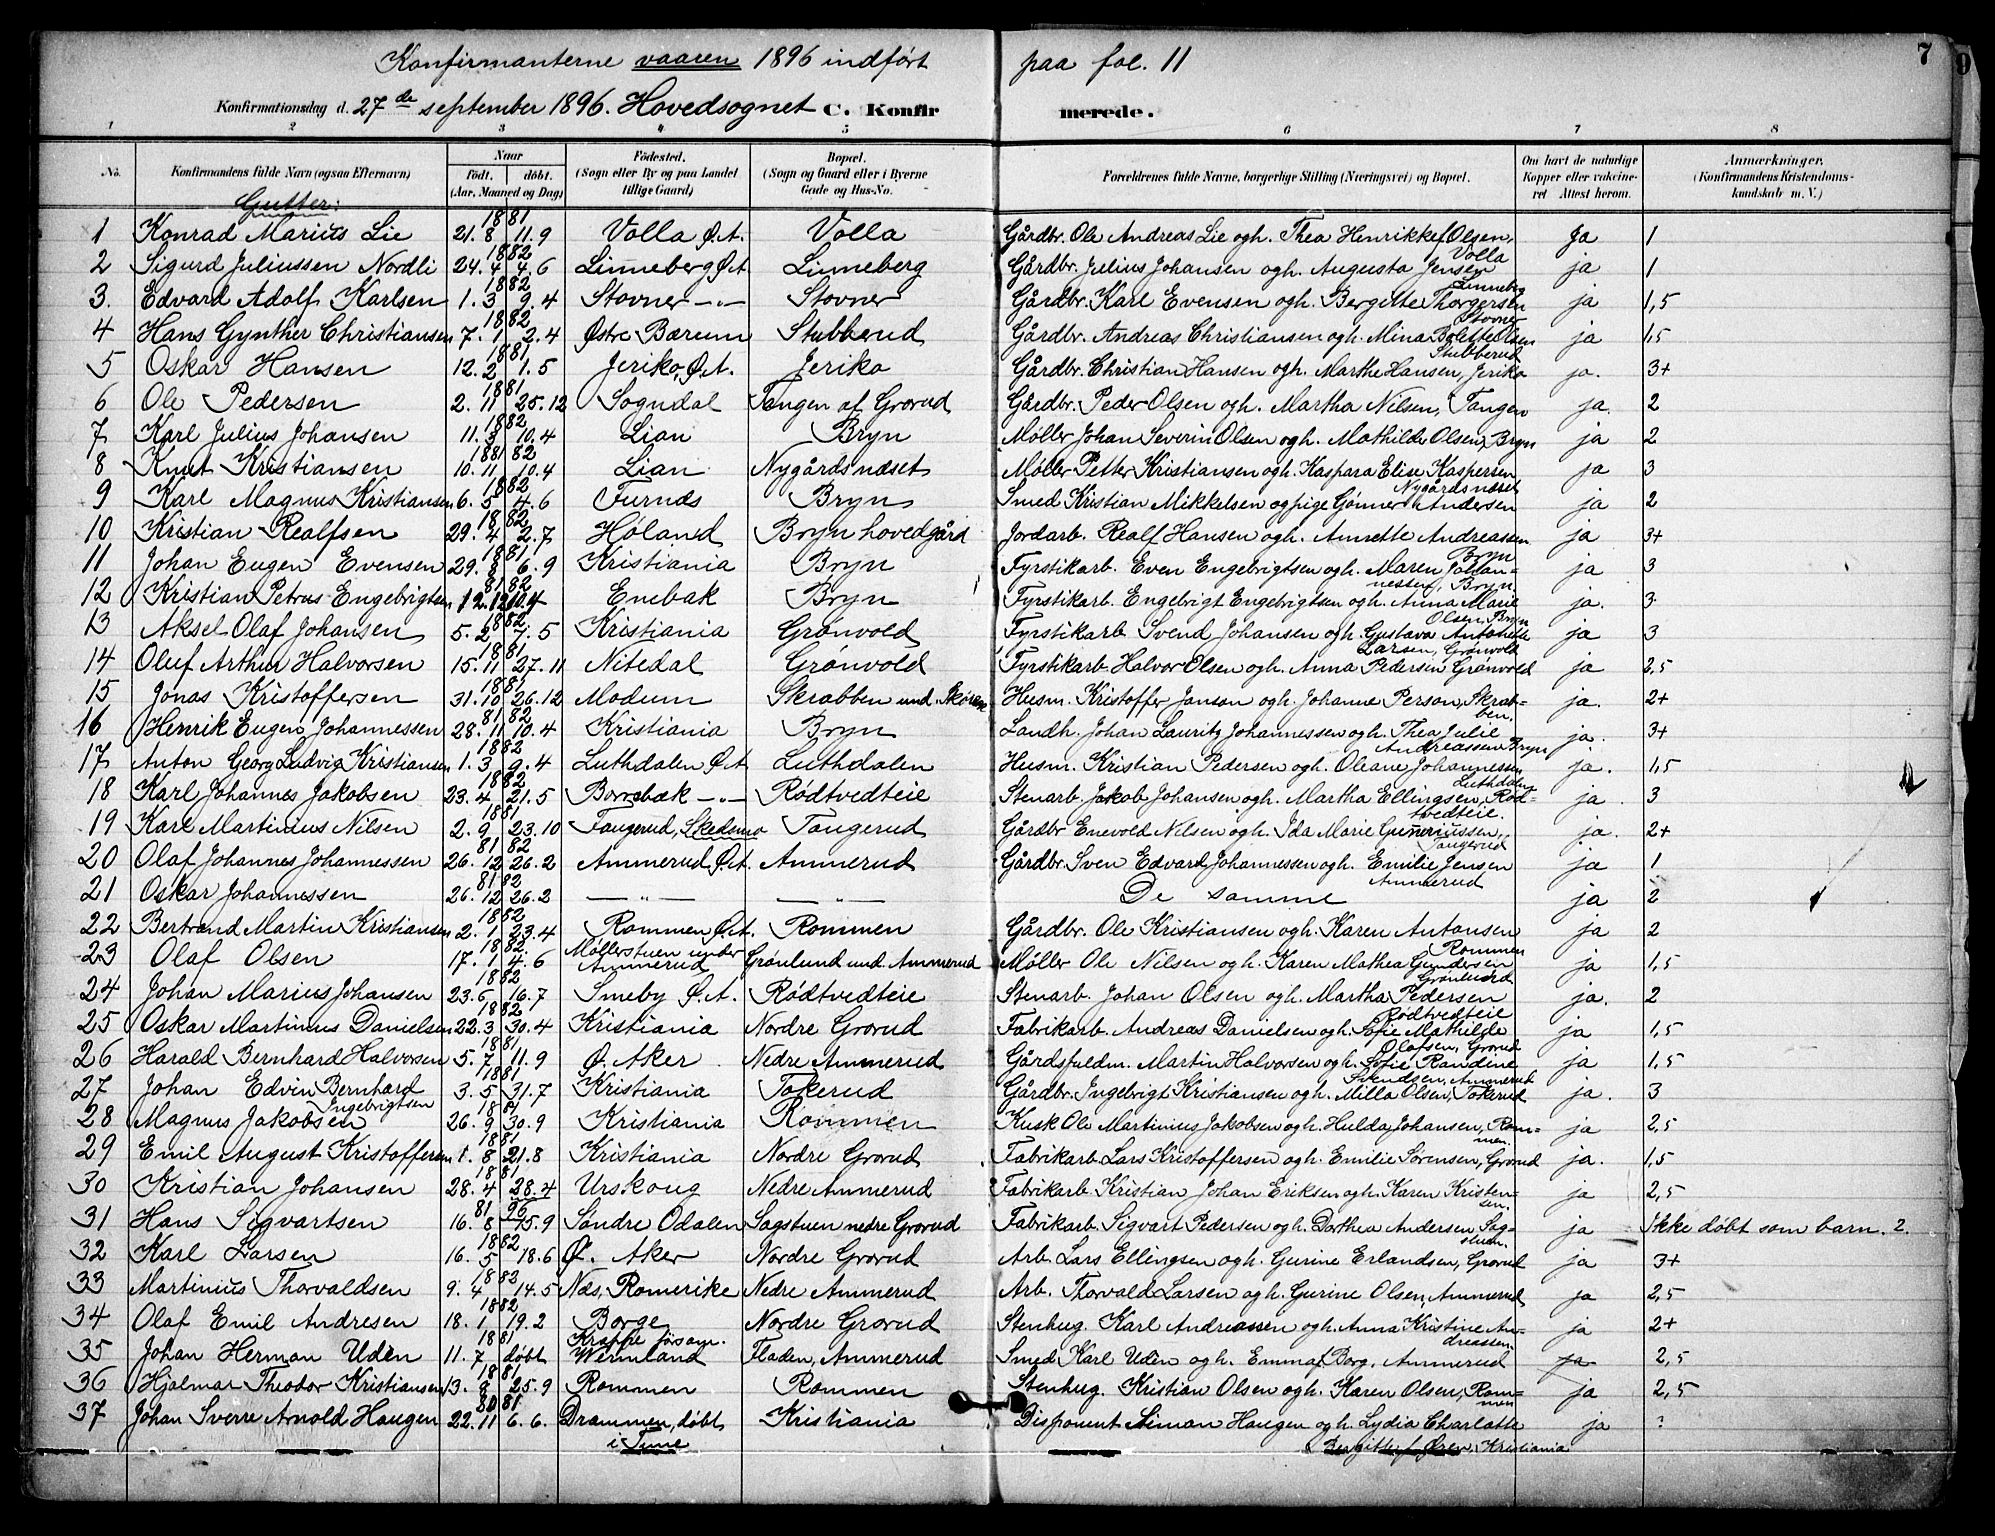 Konfirmanterne vaaren 1896 indført paa fol. 11
7
Konfirmationsdag d. 27de september 1896. Hovedsognet C. Konfirmerede.
1 2 3 4 5 6 7 8
No. Konfirmandens fulde Navn (ogsaa Efternavn) Naar Født. døbt. (Aar, Maaned og Dag) Fødested. (Sogn eller By og paa Landet tillige Gaard) Bopæl. (Sogn og Gaard eller i Byerne Gade og Hus-No. Forældrenes fulde Navne, borgerlige Stilling (Næringsvei) og Bopæl. Om havt de naturlige Kopper eller vakcineret Attest herom. Anmærkninger. (Konfirmandens Kristendomskundskab m. V.)
Gutter:
1 Konrad Marius Lie 1881 21.8 11.9 Volla Ø.A. Volla Gårdbr. Ole Andreas Lie og h. Thea Henrikke f. Olsen, Volla Ja 1
2 Sigurd Juliussen Nordli 1882 24.4 4.6 Linneberg Ø.A Linneberg Gårdbr. Julius Johansen og h. Augusta Jensen Linneberg ja 1
3. Edvard Adolf Karlsen 1882 1.3 9.4 Stovner -"- Stovner Gårdbr. Karl Evensen og h. Bergitte Thorgersen Stovner ja 1,5
4 Hans Gynther Christiansen 1882 7.1 2.4 Østre Bærum Stubberud Gårdbr. Andreas Christiansen og h. Mina Bolette Olsen Stubberud ja 1,5
5 Oskar Hansen 1881 12.2 1.5 Jeriko, Ø.A. Jeriko Gårdbr. Christian Hansen og h. Marthe Hansen, Jeriko ja. 3+
6 Ole Pedersen 1881 2.11 25.12 Sogndal Tangen af Grorud Gårdbr. Peder Olsen og h. Martha Nilsen, Tangen ja. 2
7 Karl Julius Johansen 1882 11.3 10.4 Lian Bryn Møller Johan Severin Olsen og h. Mathilde Olsen, Bryn ja 2
8 Knut Kristiansen 1881 82 10.11 10.4 Lian Nygårdsnæset Møller Petter Kristiansen og h. Kaspara Elise Kaspersen Nygårdsnæset ja 3
9 Karl Magnus Kristiansen 1882 6.5 4.6 Furnæs Bryn Smed Kristian Mikkelsen og pige Gønner Andersen ja 2
10 Kristian Realfsen 1882 29.4 2.7 Høland Bryn hovedgård Jordarb. Realf Hansen og h. Annette Andreassen Bryn ja 3+
11 Johan Eugen Evensen 1881 29.8 6.9 Kristiania Bryn Fyrstikarb. Even Engebrigtsen og h. Maren Johannessen, Bryn ja 3
12 Kristian Petrus Engebrigtsen 81 82 12.12 10.4 Enebak Bryn Fyrstikarb. Engebrigt Engebrigtsen og h. Anna Marie Olsen, Bryn ja. 3
13 Aksel Olaf Johansen 1882 5.2 7.5 Kristiania Grønvold Fyrstikarb. Svend Johansen og h. Gustava Antonette Larsen, Grønvold ja 3
14 Oluf Arthur Halvorsen 1881 15.11 27.11 Nitedal Grønvold Fyrstikarb. Halvor Olsen og h. Anna Pedersen Grønvold ja 2,5
15 Jonas Kristoffersen 1881 31.10 26.12 Modum Skrabben und. Skøien Husm. Kristoffer Janson og h. Johanne Person, Skrabben. ja. 2+
16 Henrik Eugen Johannessen 81 82 28.11 10.4 Kristiania Bryn Landh. Johan Lauritz Johannessen og h. Thea Julie Andreassen Bryn ja. 3+
17 Anton Georg Ludvig Kristiansen 1882 1.3 9.4 Luthdalen Ø.A Luthdalen Husm. Kristian Pedersen og h. Oleane Johannessen Luthdalen ja. 1,5
18 Karl Johannes Jakobsen 1882 23.4 21.5 Borrebæk -"- Rødtvedteie Stenarb. Jakob Johansen og h. Martha Ellingsen, Rødtvedteie. ja. 3
19 Karl Martinius Nilsen 1881 2.9 23.10 Tangerud, Skedsmo Tangerud Gårdbr Enevold Nilsen og h. Ida Marie Guneriussen, Tangerud ja. 2+
20 Olaf Johannes Johannessen 81 82 26.12 26.2 Ammerud Ø.A. Ammerud Gårdbr. Sven Edvard Johannessen og h. Emilie Jensen Ammerud ja 1
21 Oskar Johannessen 81 82 26.12 26.2 -"- -"- De samme ja 2
22 Bertrand Martin Kristiansen 1882 2.1 23.4 Rommen Ø.A. Rommen Gårdbr. Ole Kristiansen og h. Karen Antonsen Rommen ja 2
23 Olaf Olsen 1882 17.1 4.6 Møllerstuen under Ammerud Grønlund und. Ammerud Møller Ole Nilsen og h. Karen Mathea Gundersen Grønlund ja 1,5
24 Johan Marius Johansen 1882 23.6 16.7 Smeby Ø.A. Rødtvedteie Stenarb. Johan Olsen og h. Martha Pedersen Rødtvedteie ja. 2
25 Oskar Martinius Danielsen 1882 22.3 30.4 Kristiania Nordre Grorud Fabrikarb. Andreas Danielsen og h. Sofie Mathilde Olafsen, Grorud ja 1,5
26 Harald Bernhard Halvorsen 1881 5.7 11.9 Ø. Aker Nedre Ammerud Gårdsfuldm. Martin Halvorsen og h. Sofie Randine Svendsen, Ammerud ja 1,5
27 Johan Edvin Bernhard Ingebrigtsen 1881 3.5 31.7 Kristiania Tokerud Gårdbr. Ingebrigt Kristiansen og h. Milla Olsen, Tokerud ja. 3
28 Magnus Jakobsen 1881 26.9 30.9 Kristiania Rommen Kusk Ole Martinius Jakobsen og h. Hulda Johansen, Rommen. ja 2,5
29 Emil August Kristoffersen 1881 1.8 21.8 Kristiania Nordre Grorud Fabrikarb. Lars Kristoffersen og h. Emilie Sørensen, Grorud ja. 1,5
30 Kristian Johansen 1881 28.4 28.4 Urskoug Nedre Ammerud Fabrikarb. Kristian Johan Eriksen og h. Karen Kristensen. ja 2,5
31 Hans Sigvartsen 81 96 16.8 15.9 Søndre Odalen Sagstuen nedre Grorud Fabrikarb. Sigvart Pedersen og h. Dorthea Andersen Sagstuen. ja Ikke døbt som barn. 2.
32 Karl Larsen 1882 16.5 18.6 Ø. Aker Nordre Grorud Arb. Lars Ellingsen og h. Gurine Erlandsen, Grorud ja 3+
33 Martinius Thorvaldsen 1882 9.4 14.5 Næs, Romerike Nedre Ammerud Arb. Thorvald Larsen og h. Gurine Olsen, Ammerud ja 2,5
34 Olaf Emil Andresen 1882 18.1 19.2 Borge Nordre Grorud Stenhug. Karl Andreassen og h. Anna Kristine Andreassen. ja 2+
35 Johan Herman Udén 1881 11.7 døbt Wermland Fladen, Ammerud Smed Karl Udén og h. Emma f. Borg, Ammerud ja 2,5
36 Hjalmar Theodor Kristiansen 1881 13.8 25.9 Rommen Rommen Stenhug. Kristian Olsen og h. Karen Olsen, Rommen ja 2,5
37 Johan Sverre Arnold Haugen 80 81 22.11 6.6. Drammen, døbt i Time Kristiania Disponent Simon Haugen og h. Lydia Charlotte Bergitte f. Øren, Kristiania ja ?